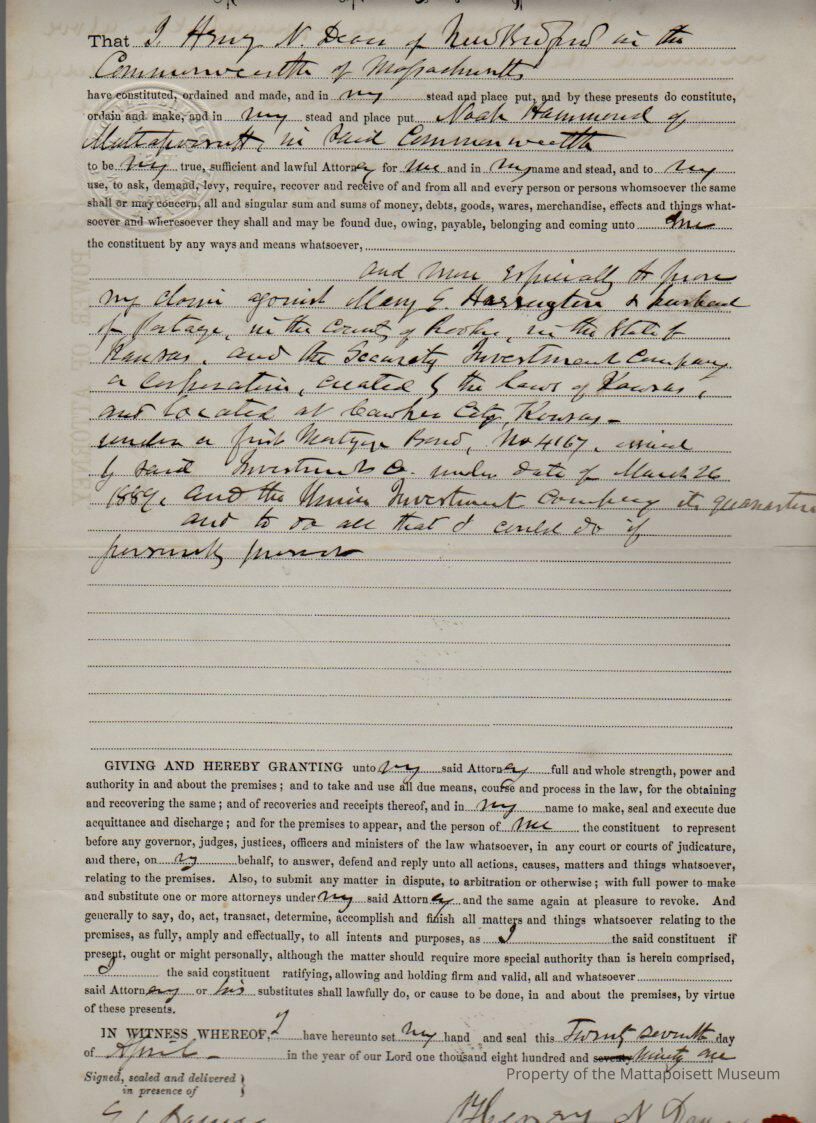 That I Henry N. Dean of New Bedford in the
Commonwealth of Massachusetts
have constituted, ordained and made, and in my stead and place put, and by these presents do constitute,
ordain and make, and in my stead and place put Noah Hammond of
Mattapoisett, in said Commonwealth
to be my true, sufficient and lawful Attorney for me and in my name and stead, and to my
use, to ask, demand, levy, require, recover and receive of and from all and every person or persons whomsoever the same
shall or may concern, all and singular sum and sums of money, debts, goods, wares, merchandise, effects and things what-
soever and wheresoever they shall and may be found due, owing, payable, belonging and coming unto me
the constituent by any ways and means whatsoever,
and more especially to prove
my claim against Mary E. Harrington & husband
of Portage, in the County of Rooks, in the State of
Kansas, and the Security Investment Company
a corporation, created by the laws of Kansas,
and located at Cawker City, Kansas
under a first Mortgage Bond, No 4167, issued
by said Investment Co. under date of March 26
1889, and the Union Investment Company its
and to do all that I could do if
personally present
GIVING AND HEREBY GRANTING unto my said Attorney full and whole strength, power and
authority in and about the premises; and to take and use all due means, course and process in the law, for the obtaining
and recovering the same; and of recoveries and receipts thereof, and in my name to make, seal and execute due
acquittance and discharge; and for the premises to appear, and the person of me the constituent to represent
before any governor, judges, justices, officers and ministers of the law whatsoever, in any court or courts of judicature,
and there, on my behalf, to answer, defend and reply unto all actions, causes, matters and things whatsoever,
relating to the premises. Also, to submit any matter in dispute, to arbitration or otherwise; with full power to make
and substitute one or more attorneys under my said Attorney and the same again at pleasure to revoke. And
generally to say, do, act, transact, determine, accomplish and finish all matters and things whatsoever relating to the
premises, as fully, amply and effectually, to all intents and purposes, as I the said constituent if
present, ought or might personally, although the matter should require more special authority than is herein comprised,
I the said constituent ratifying, allowing and holding firm and valid, all and whatsoever
said Attorney or his substitutes shall lawfully do, or cause to be done, in and about the premises, by virtue
of these presents.
IN WITNESS WHEREOF, I have hereunto set my hand and seal this Twenty seventh day
of April in the year of our Lord one thousand eight hundred and seventy Ninety one
Signed, sealed and delivered
in presence of
Henry N. Dean
Property of the Mattapoisett Museum
POWER OF ATTORNEY